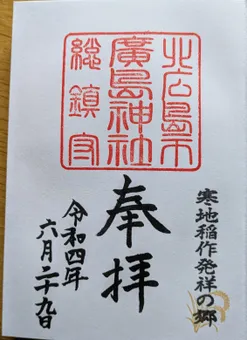 北広島市
廣島神社
総鎮守
寒地稲作発祥の郷
奉拝
令和四年
六月二十九日